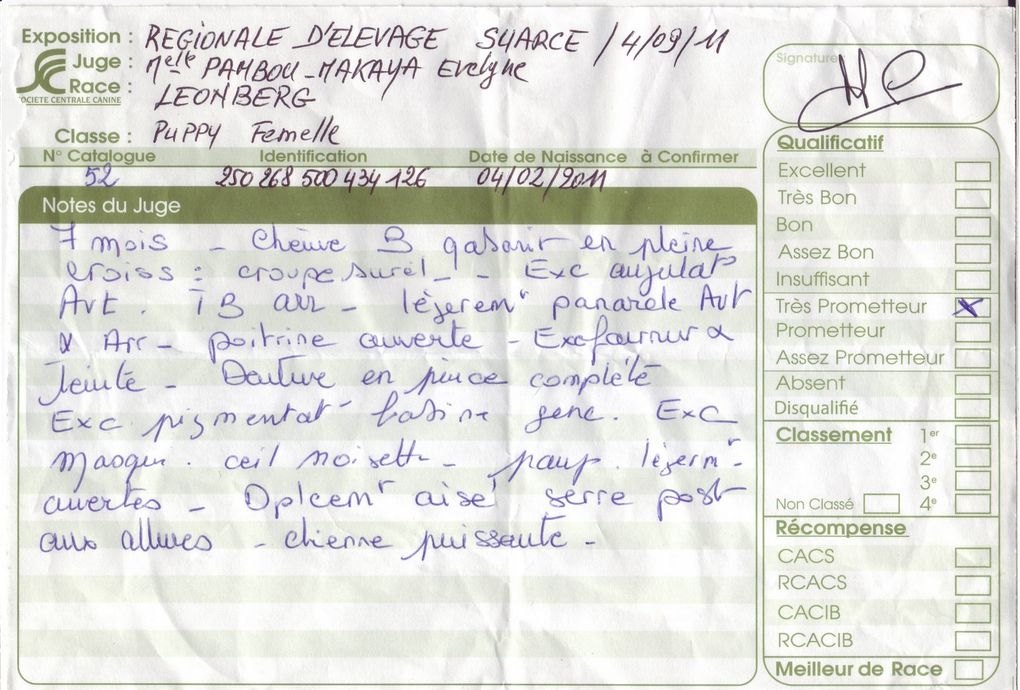 Exposition : REGIONALE D'ELEVAGE SUARCE / 4/09/11
Juge : Melle PAMBOU-MAKAYA Evelyne
Race : LEONBERG
SOCIETE CENTRALE CANINE
Classe : PUPPY Femelle
N° Catalogue Identification Date de Naissance à Confirmer
52 250 268 500 434 126 04/02/2011
Notes du Juge
7 mois - B gabarit en pleine
croiss : croupe surél - Exc angulat°
Avt. TB arr - légèrem^t panarde Avt
& Arr - poitrine ouverte - Exc fourrur &
Teinte - Denture en pince complété
Exc pigmentat° babine genc. Exc
Masque. oeil noisett - paup. légerm^t
ouvertes - Dplcem^t aisé serre post
aux allures - chienne puissante -
Signature
Qualificatif
Excellent
Très Bon
Bon
Assez Bon
Insuffisant
Très Prometteur X
Prometteur
Assez Prometteur
Absent
Disqualifié
Classement 1er
2e
3e
Non Classé 4e
Récompense
CACS
RCACS
CACIB
RCACIB
Meilleur de Race